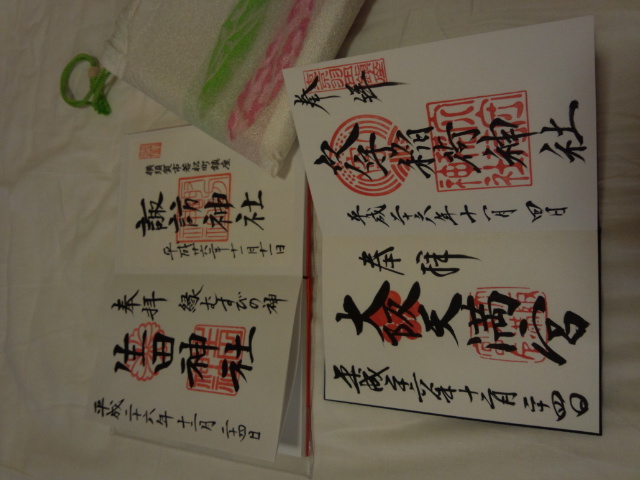 横須賀市若松町鎮座
諏訪神社
平成廿六年十一月十一日
奉拝 縁むすびの神
生田神社
平成二十六年十二月二十四日
奉拝
穴守稲荷神社
平成二十六年十一月四日
奉拝
大阪天満宮
平成二十六年十二月二十四日